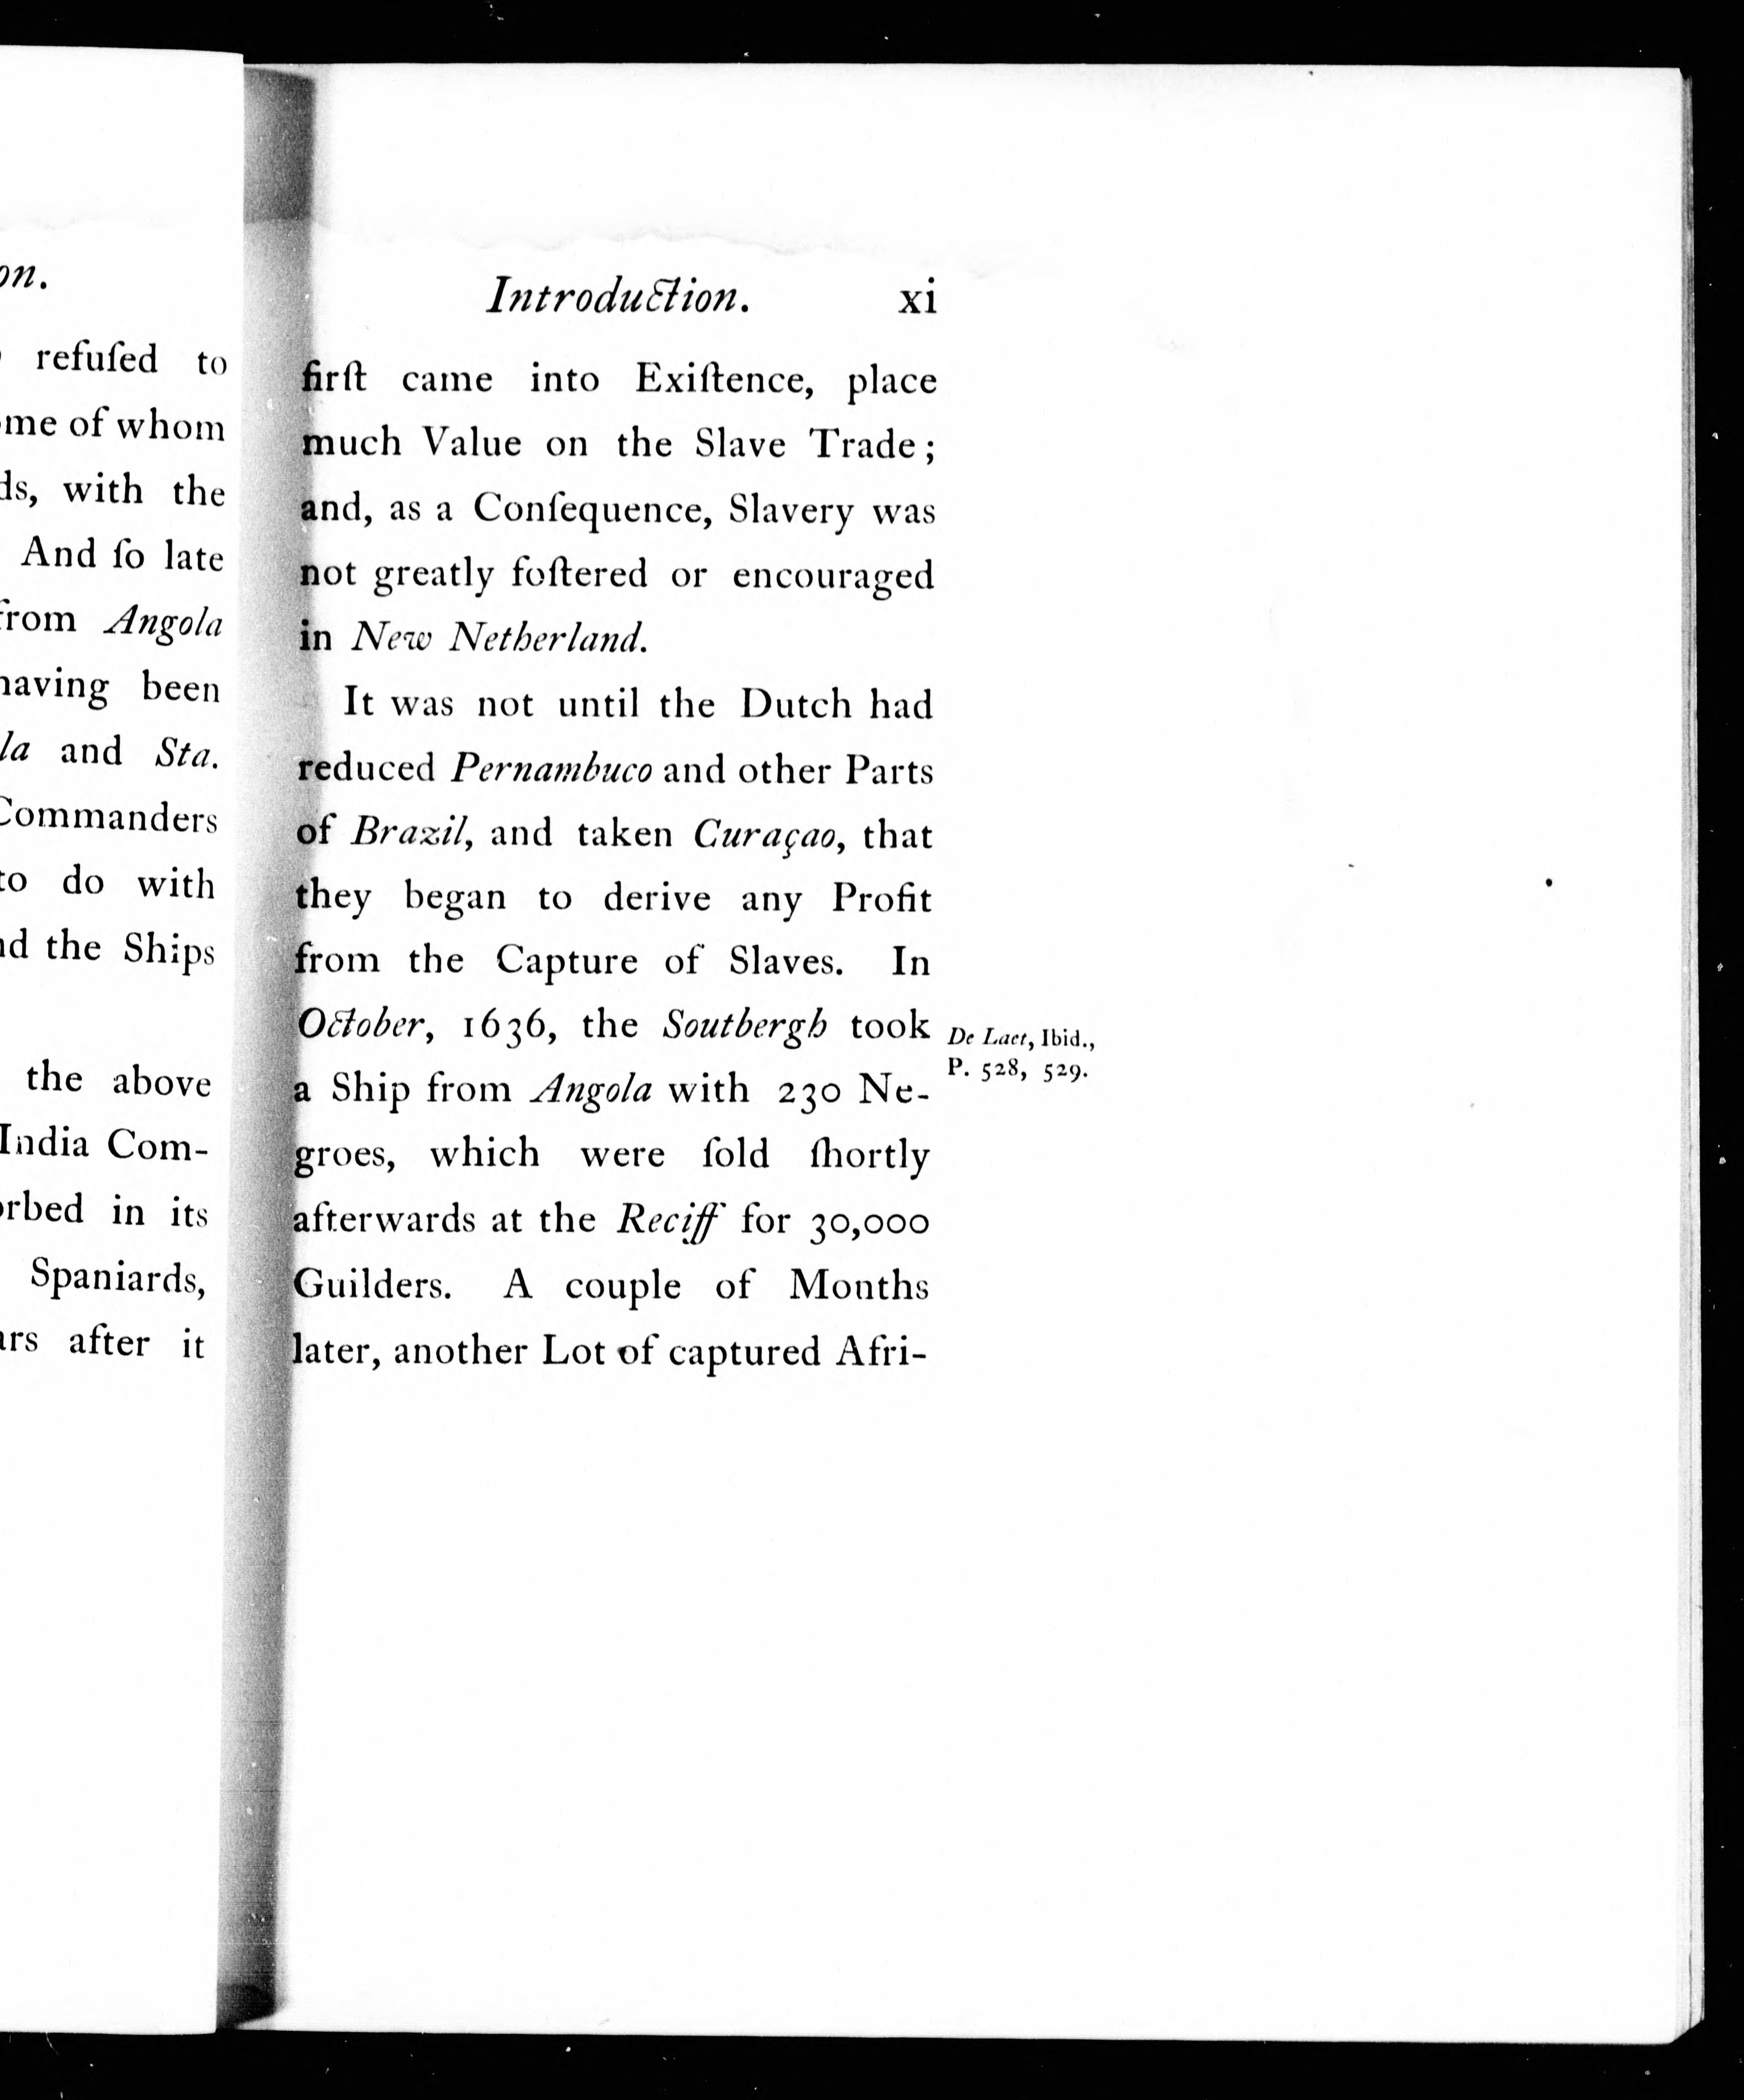 on.
refuſed to
me of whom
ds, with the
And ſo late
from Angola
having been
la and Sta.
Commanders
to do with
nd the Ships
the above
India Com-
orbed in its
Spaniards,
ars after it
Introduction. xi
firſt came into Exiſtence, place
much Value on the Slave Trade;
and, as a Conſequence, Slavery was
not greatly foſtered or encouraged
in New Netherland.
It was not until the Dutch had
reduced Pernambuco and other Parts
of Brazil, and taken Curaçao, that
they began to derive any Profit
from the Capture of Slaves. In
October, 1636, the Soutbergh took
a Ship from Angola with 230 Ne-
groes, which were ſold ſhortly
afterwards at the Reciff for 30,000
Guilders. A couple of Months
later, another Lot of captured Afri-
De Laet, Ibid.,
P. 528, 529.